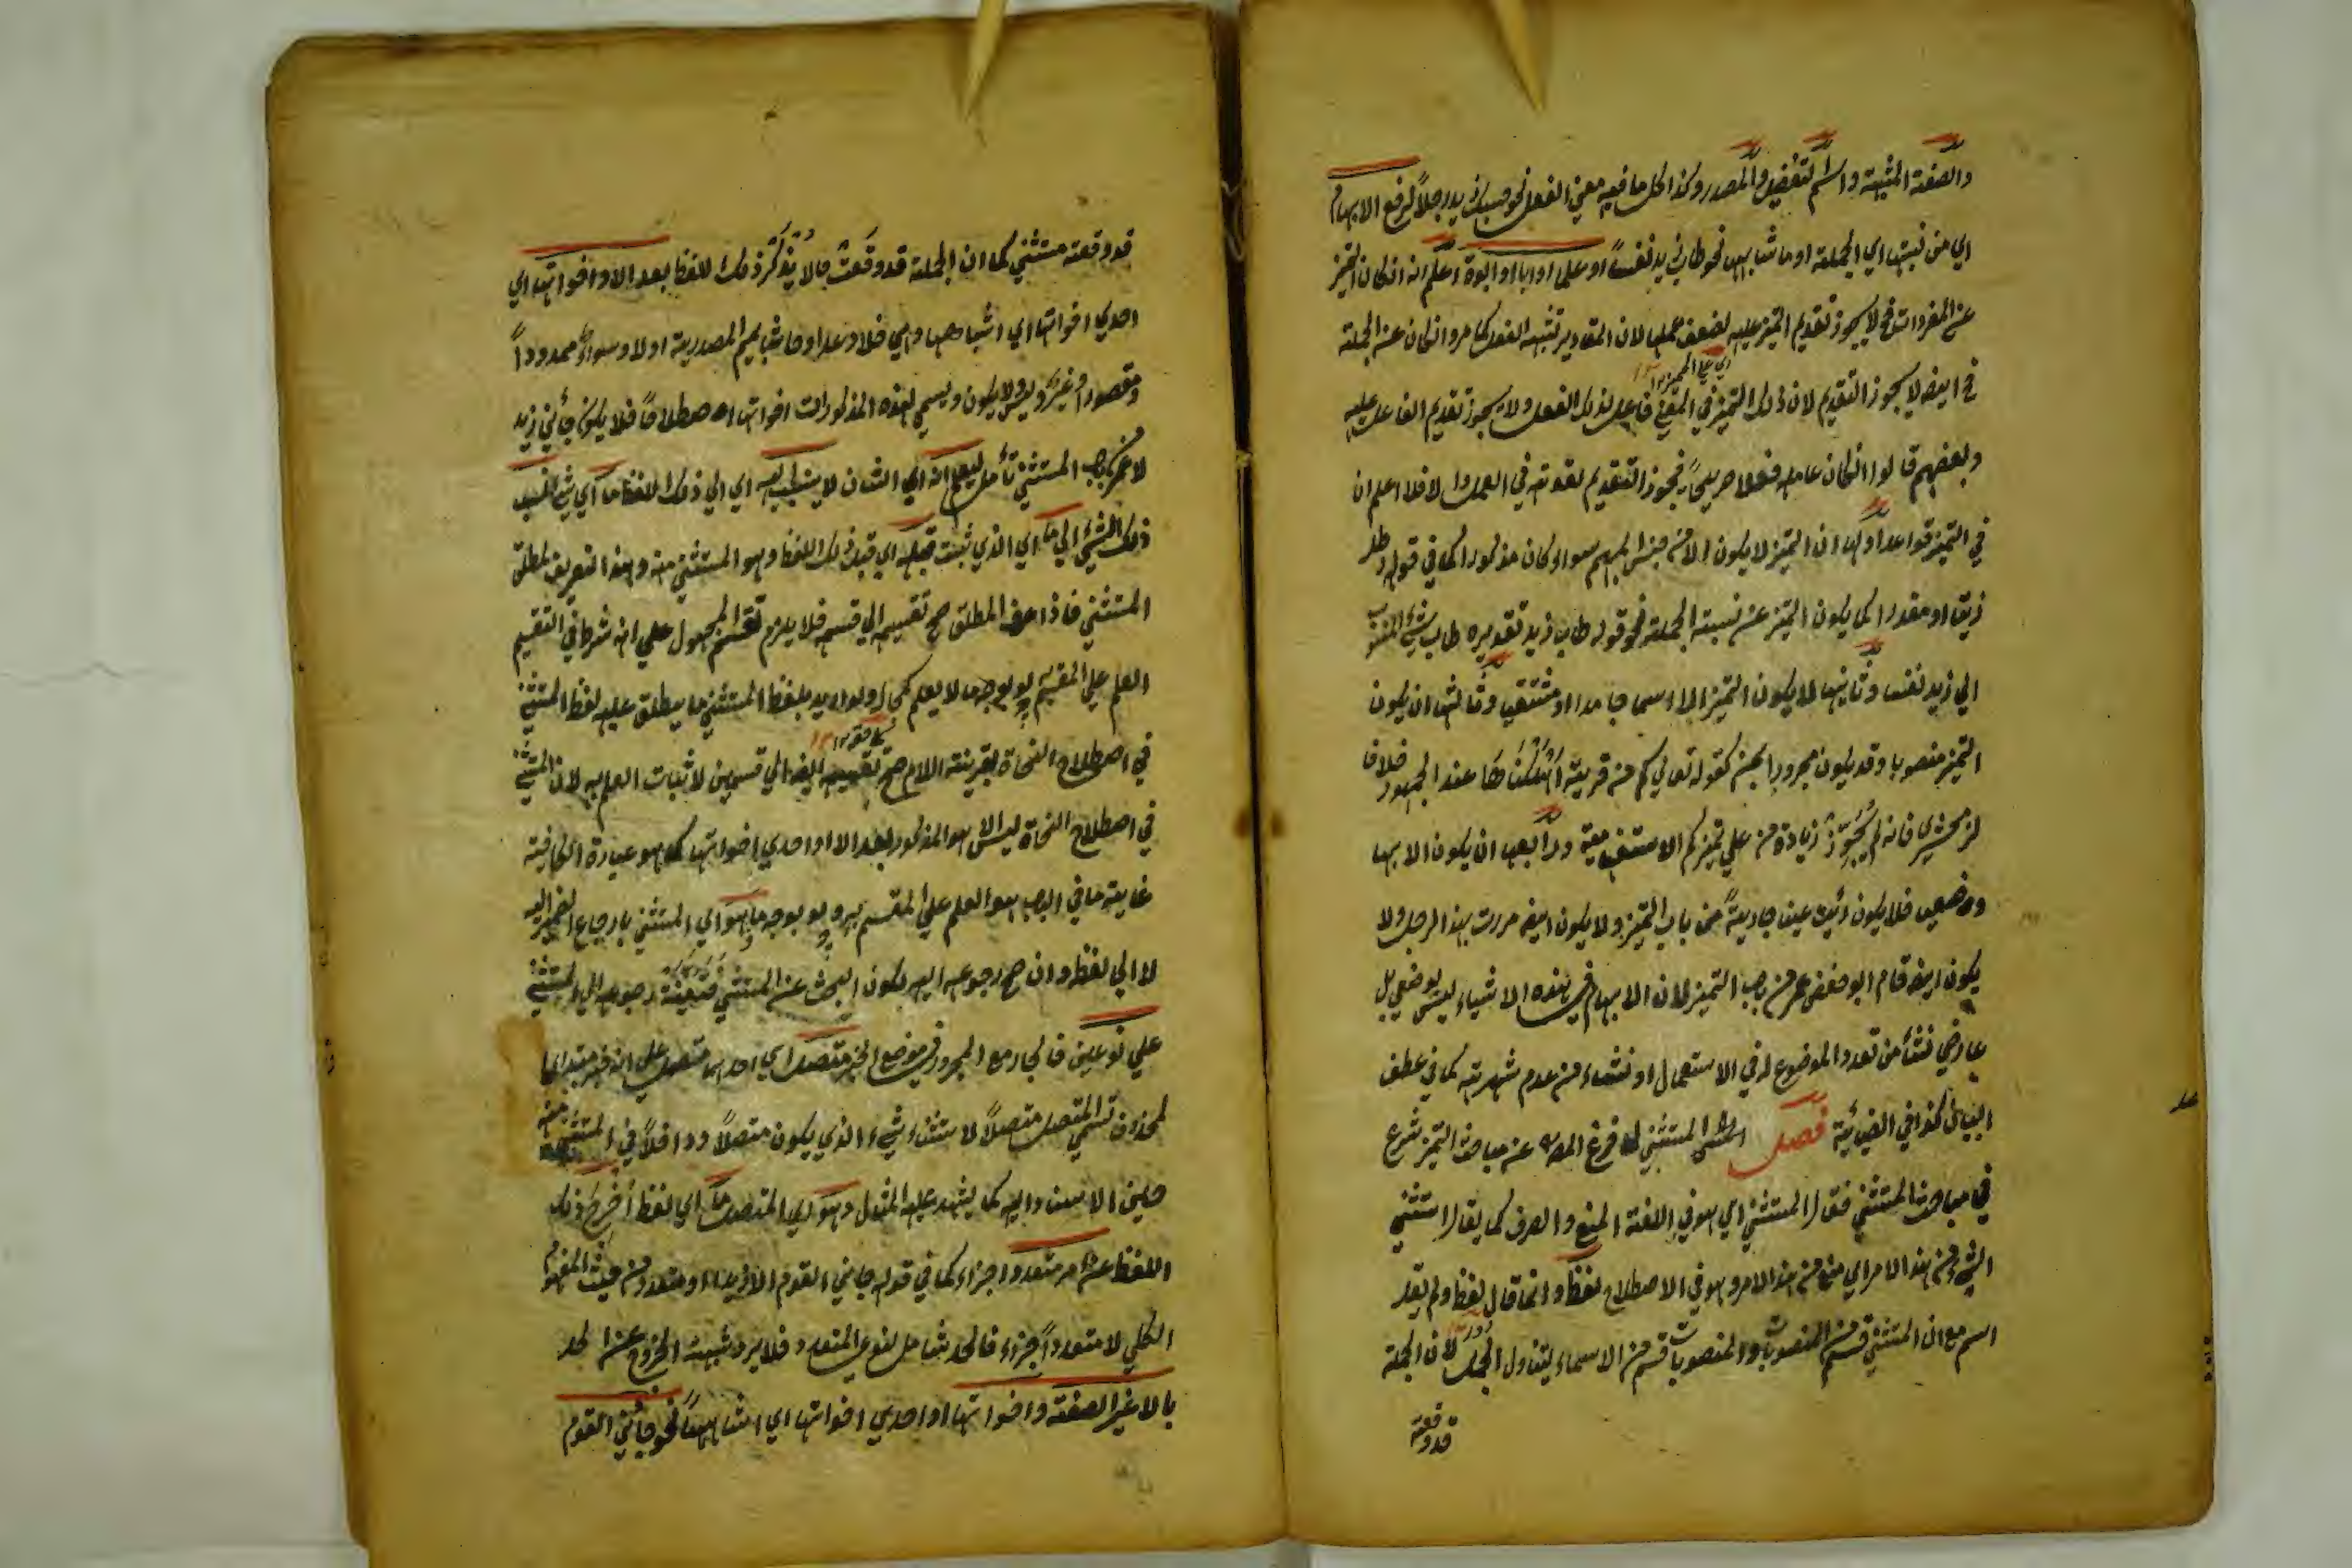 والصفة المشبهة واسم التفضيل والمصدر وكذا كل ما فيه معنى الفعل نحو حسبك زيد رجلاً لرفع الابهام
اي من نسبتها اي الجملة او ما شابهها نحو طاب زيد نفساً او علما او ابا او ابوة اعلم انه ان كان التميز
عن المفردات فح لا يجوز تقديم التميز عليه لضعف عملها لان المقادير تشبه الفعل كما مر وان كان عن الجملة
فح ايضا لا يجوز التقديم لان ذلك التميز في المعنى فاعل لذلك الفعل ولا يجوز تقديم الفاعل عليه
وبعضهم قالوا ان كان عامله فعلا صريحاً فيجوز التقديم لقوته في العمل والا فلا اعلم ان
في التميز قواعد اولها ان التميز لا يكون الا من جنس المبهم سواء كان مذكورا كما في قوله رطل
زيتا او مقدرا كما يكون التميز عن نسبة الجملة نحو قوله طاب زيد تقديره طاب شيء المنسوب
الي زيد نفسا وثانيها لا يكون التميز الا اسما جامدا او مشتقا وثالثها ان يكون
التميز منصوبا وقد يكون مجرورا بمن كقوله تعالي كم من قرية اهلكناها عند الجمهور خلافا
لزمحشري فانه لم يجوز زيادة من علي تميز كم الاستفهامية ورابعها ان يكون الابها
وضعيا فلا يكون رأيت عينا جارية من باب التميز ولا يكون ايضا مررت بهذا الرجل ولا
يكون ايضا قام ابو حفص عمر من باب التميز لان الابهام في هذه الاشياء ليس بوضعي بل
عارضي نشأ من تعدد الموضوع له في الاستعمال او نشاء من عدم شهرته كما في عطف
البيان كذا في الضيائية فصل المستثني لما فرغ المص عن مباحث التميز شرع
في مباحث المستثني فقال المستثني اي هو في اللغة المنع والصرف كما يقال استثني
الشيء من هذا الامر اي منع من هذا الامر وهو في الاصطلاح لفظ وانما قال لفظ ولم يقل
اسم مع ان المستثني قسم من المنصوبات والمنصوبات قسم من الاسماء ليتناول الجمل لان الجملة
قد وقعته
قد وقعته مستثني كما ان الجملة قد وقعت حالا يذكر ذلك اللفظ بعد الا واخواتها اي
احدي اخواتها اي اشباهها وهي خلا وعدا وحاشا بميم المصدرية اولا وسواء ممدوداً
ومقصورا وغير وليس ولا يكون ويسمي هذه المذكورات اخواتها اصطلاحاً فلا يكون جأني زيد
لا عمر بباب المستثني تأمل ليعلم انه اي الشان لا ينسب اليه اي الي ذلك اللفظ ما اي شيء نسب
ذلك الشيء الي ما اي الذي ثبت قبله اي قبل ذلك اللفظ وهو المستثني منه وهذا تعريف لمطلق
المستثني فاذا عرف المطلق صح تقسيمه الي قسميه فلا يلزم تقسيم المجهول علي انه شرط في التقسيم
العلم علي المقسم ولو بوجه ما لا يعلم كما ولو اريد بلفظ المستثني ما يطلق عليه لفظ المستثني
في اصطلاح النحاة بقرينة اللام صح تقسيمه ايضا الي قسمين لاثبات العلم به لان المستثني
في اصطلاح النحاة ليس الا هو المذكور بعد الا او احدي اخواتها كما هو عبارة الكافية
غاية ما في الباب هو العلم علي المقسم به ولو بوجه ما وهو اي المستثني بارجاع الضمير اليه
لا الي لفظ وان صح رجوعه اليه لكون البحث عن المستثني فتعينت رجوعه الي المستثني
علي نوعين فالجار مع المجرور في موضع الخبر متصل اي احدهما متصل علي انه خبر مبتدا
محذوف تسمي المتصل متصلاً لاستثناء شيء الذي يكون متصلاً وداخلاً في المستثني منه
حين الاسناد اليه كما يشهد عليه المثال وهو اي المتصل ما اي لفظ اخرج ذلك
اللفظ عن امر متعدد اجزاء كما في قوله جاءني القوم الا زيدا او متعدد من حيث المفهوم
الكلي لا متعدداً اجزاء فالحد شامل لنوعي المتعدد فلا يرد شبهة الخروج عن الحد
بالا غير الصفة واخواتها او احدي اخواتها اي اشباهها نحو جأني القوم